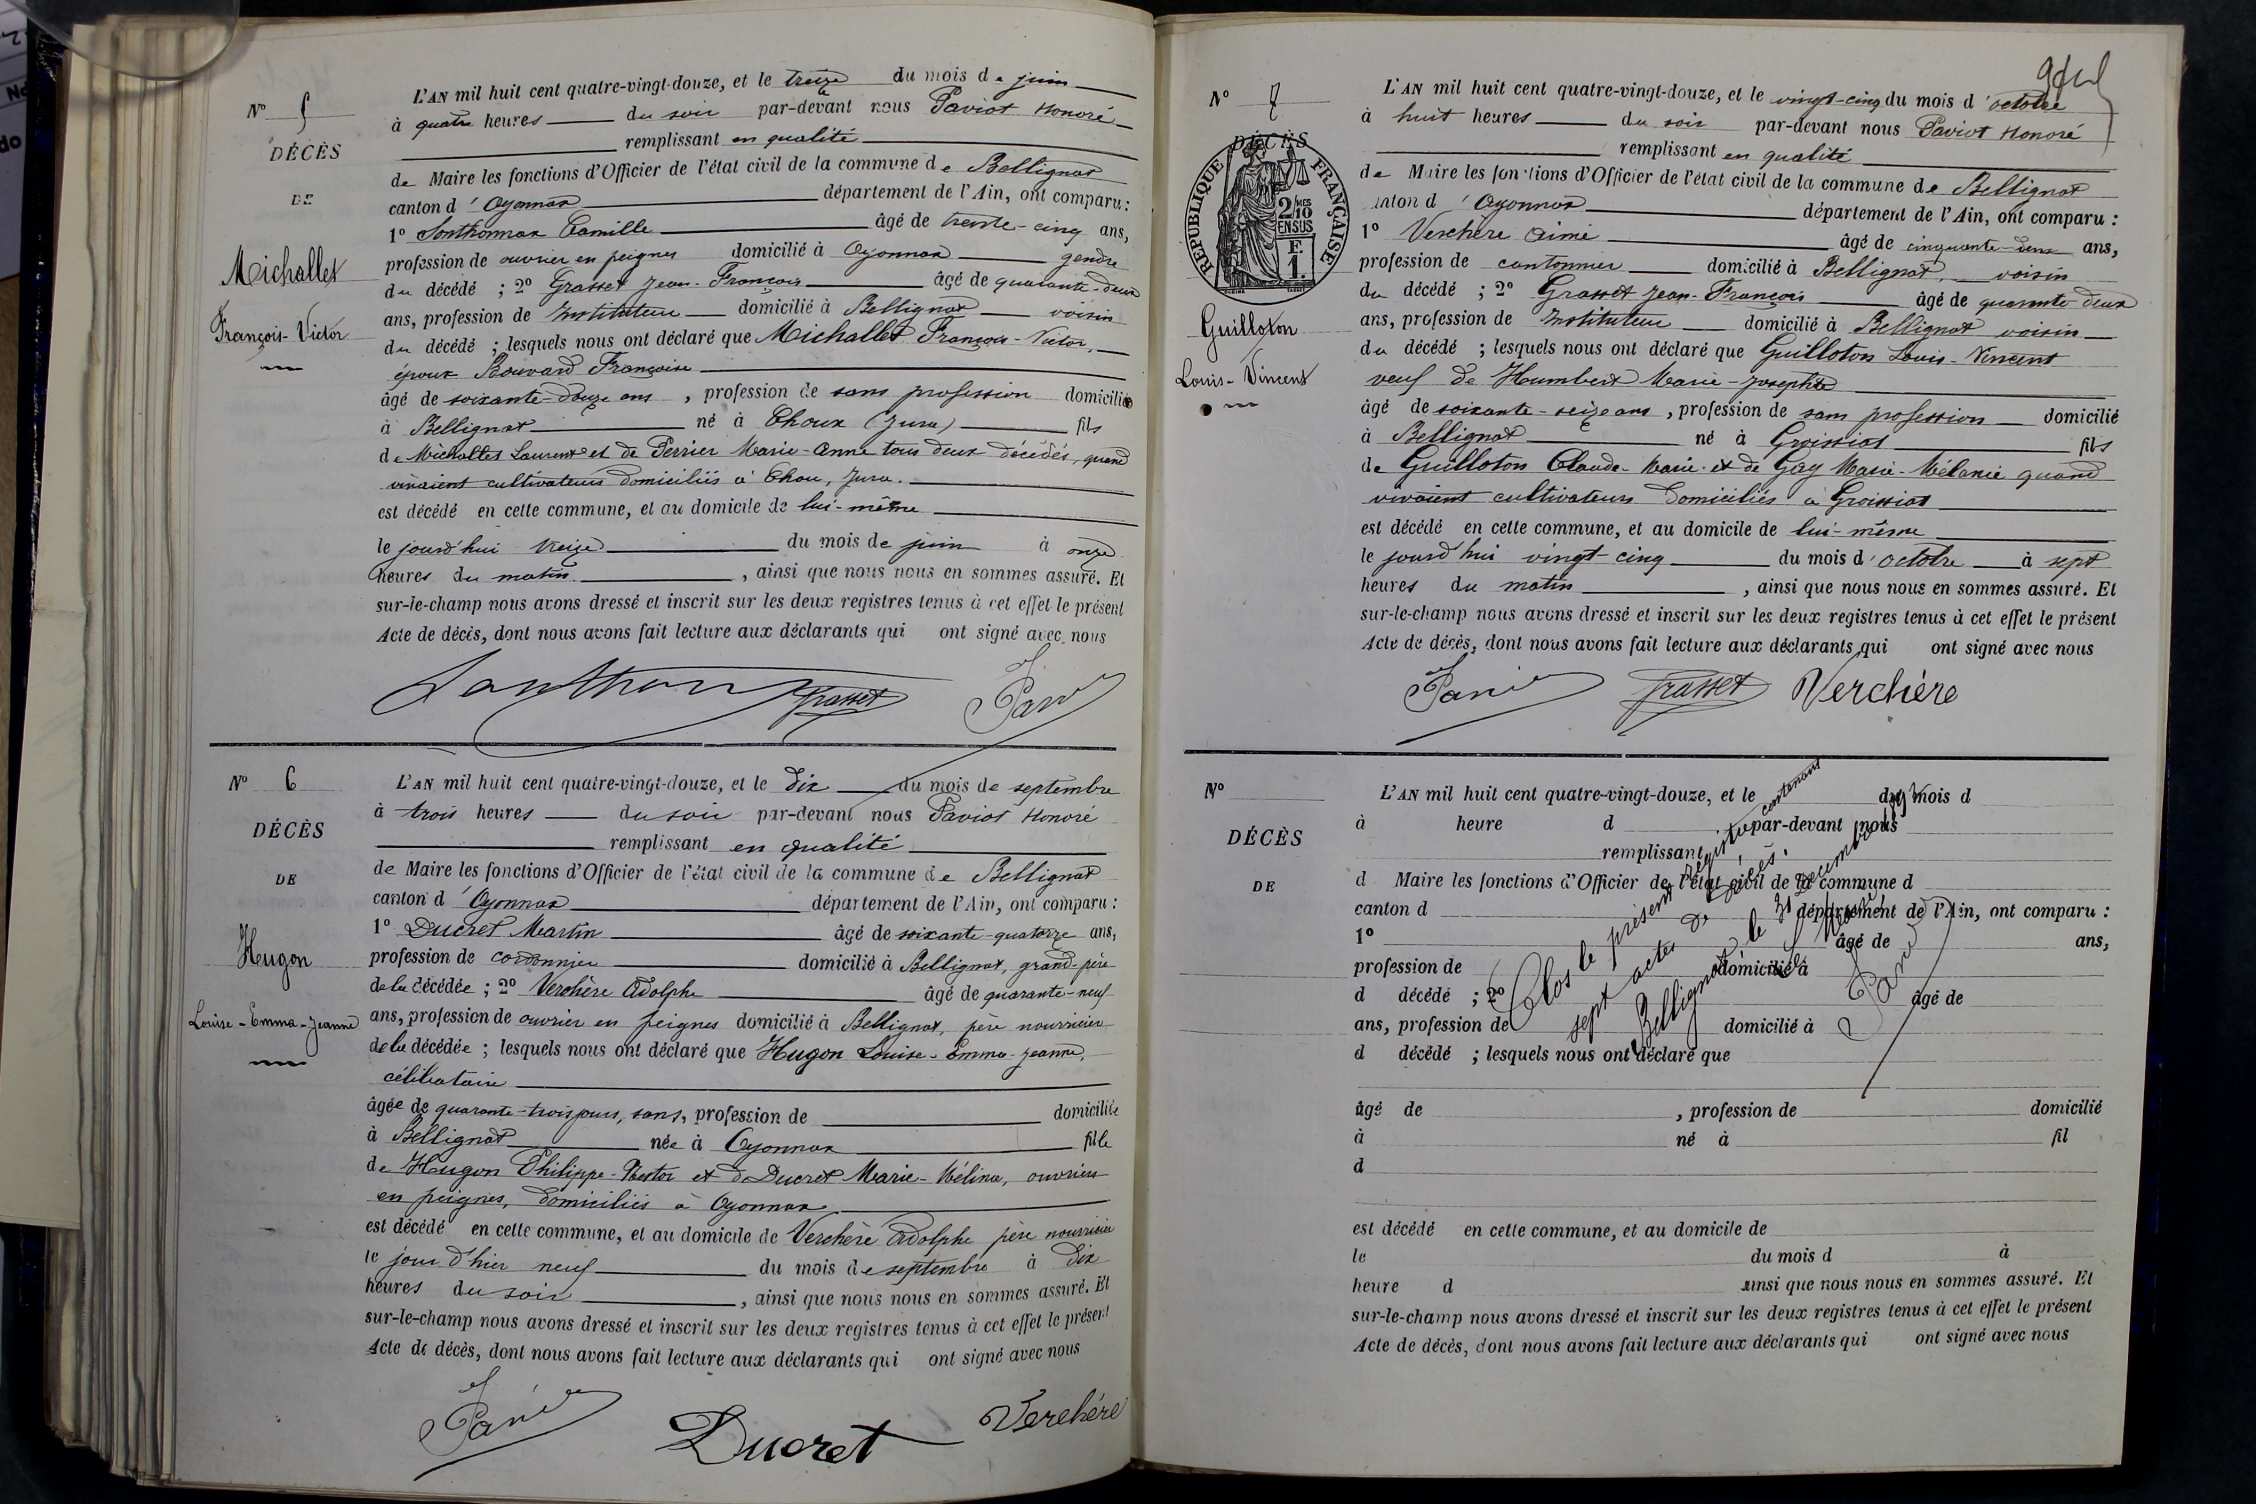 N° 5
DÉCÈS
DE
Michallet
François-Victor
L'AN mil huit cent quatre-vingt-douze, et le treize du mois de juin
à quatre heures du soir par-devant nous Paviot Honoré
remplissant en qualité
de Maire les fonctions d'Officier de l'état civil de la commune de Bellignat
canton d'Oyonnax département de l'Ain, ont comparu :
1° Sonthonnax Camille âgé de trente-cinq ans,
profession de ouvrier en peignes domicilié à Oyonnax gendre
du décédé ; 2° Grasset Jean-François âgé de quarante-deux
ans, profession de Instituteur domicilié à Bellignat voisin
du décédé ; lesquels nous ont déclaré que Michallet François-Victor,
époux Bouvard Françoise
âgé de soixante-douze ans, profession de sans profession domicilié
à Bellignat né à Choux (Jura) fils
de Michallet Laurent et de Perrier Marie-Anne tous deux décédés, quand
vivaient cultivateurs domiciliés à Choux, Jura.
est décédé en cette commune, et au domicile de lui-même
le jourd'hui treize du mois de juin à onze
heures du matin, ainsi que nous nous en sommes assuré. Et
sur-le-champ nous avons dressé et inscrit sur les deux registres tenus à cet effet le présent
Acte de décès, dont nous avons fait lecture aux déclarants qui ont signé avec nous
Grasset
N° 6
DÉCÈS
DE
Hugon
Louise-Emma-Jeanne
L'AN mil huit cent quatre-vingt-douze, et le dix du mois de septembre
à trois heures du soir par-devant nous Paviot Honoré
remplissant en qualité
de Maire les fonctions d'Officier de l'état civil de la commune de Bellignat
canton d'Oyonnax département de l'Ain, ont comparu :
1° Ducret Martin âgé de soixante-quatorze ans,
profession de cordonnier domicilié à Bellignat, grand-père
de la décédée ; 2° Verchère Adolphe âgé de quarante-neuf
ans, profession de ouvrier en peignes domicilié à Bellignat, père nourricier
de la décédée ; lesquels nous ont déclaré que Hugon Louise-Emma-Jeanne,
célibataire
âgée de quarante-trois jours, sans, profession de domiciliée
à Bellignat née à Oyonnax fille
de Hugon Philippe-Nestor et de Ducret Marie-Mélina, ouvriers
en peignes, domiciliés à Oyonnax
est décédé en cette commune, et au domicile de Verchère Adolphe père nourricier
le jour d'hier neuf du mois de septembre à dix
heures du soir, ainsi que nous nous en sommes assuré. Et
sur-le-champ nous avons dressé et inscrit sur les deux registres tenus à cet effet le présent
Acte de décès, dont nous avons fait lecture aux déclarants qui ont signé avec nous
Ducret Verchère
N° 7
DÉCÈS
RÉPUBLIQUE FRANÇAISE
2/10 MES
EN SUS
F.
1.
Guilloton
Louis-Vincent
L'AN mil huit cent quatre-vingt-douze, et le vingt-cinq du mois d'octobre
à huit heures du soir par-devant nous Paviot Honoré
remplissant en qualité
de Maire les fonctions d'Officier de l'état civil de la commune de Bellignat
canton d'Oyonnax département de l'Ain, ont comparu :
1° Verchère Aimé âgé de cinquante-deux ans,
profession de cantonnier domicilié à Bellignat, voisin
du décédé ; 2° Grasset Jean-François âgé de quarante-deux
ans, profession de Instituteur domicilié à Bellignat voisin
du décédé ; lesquels nous ont déclaré que Guilloton Louis-Vincent
veuf de Humbert Marie-Josephte
âgé de soixante-seize ans, profession de sans profession domicilié
à Bellignat né à Groissiat fils
de Guilloton Claude-Marie et de Gay Marie-Mélanie quand
vivaient cultivateurs domiciliés à Groissiat
est décédé en cette commune, et au domicile de lui-même
le jourd'hui vingt-cinq du mois d'octobre à sept
heures du matin, ainsi que nous nous en sommes assuré. Et
sur-le-champ nous avons dressé et inscrit sur les deux registres tenus à cet effet le présent
Acte de décès, dont nous avons fait lecture aux déclarants qui ont signé avec nous
Grasset Verchère
N°
DÉCÈS
DE
L'AN mil huit cent quatre-vingt-douze, et le du mois d
à heure d par-devant nous
remplissant
d Maire les fonctions d'Officier de l'état civil de la commune d
canton d département de l'Ain, ont comparu :
1° âgé de ans,
profession de domicilié à
d décédé ; 2° âgé de
ans, profession de domicilié à
d décédé ; lesquels nous ont déclaré que
âgé de , profession de domicilié
à né à fil
d
est décédé en cette commune, et au domicile de
le du mois d à
heure d ainsi que nous nous en sommes assuré. Et
sur-le-champ nous avons dressé et inscrit sur les deux registres tenus à cet effet le présent
Acte de décès, dont nous avons fait lecture aux déclarants qui ont signé avec nous
Clos le présent registre contenant
sept actes de décès.
Bellignat, le 31 décembre
Le Maire,